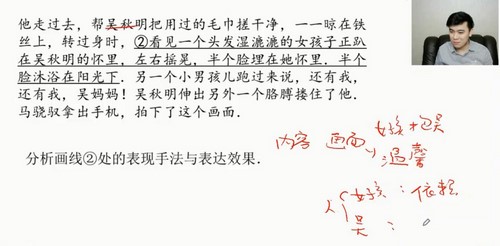 他走过去，帮吴秋明把用过的毛巾搓干净，一一晾在铁
丝上，转过身时，②看见一个头发湿漉漉的女孩子正趴
在吴秋明的怀里，左右摇晃，半个脸埋在她怀里．半个
脸沐浴在阳光下．另一个小男孩儿跑过来说，还有我，
还有我，吴妈妈！吴秋明伸出另外一个胳膊搂住了他．
马骁驭拿出手机，拍下了这个画面．
分析画线②处的表现手法与表达效果．
内容 画面 女孩抱吴
温馨
人 女孩：依赖
吴：